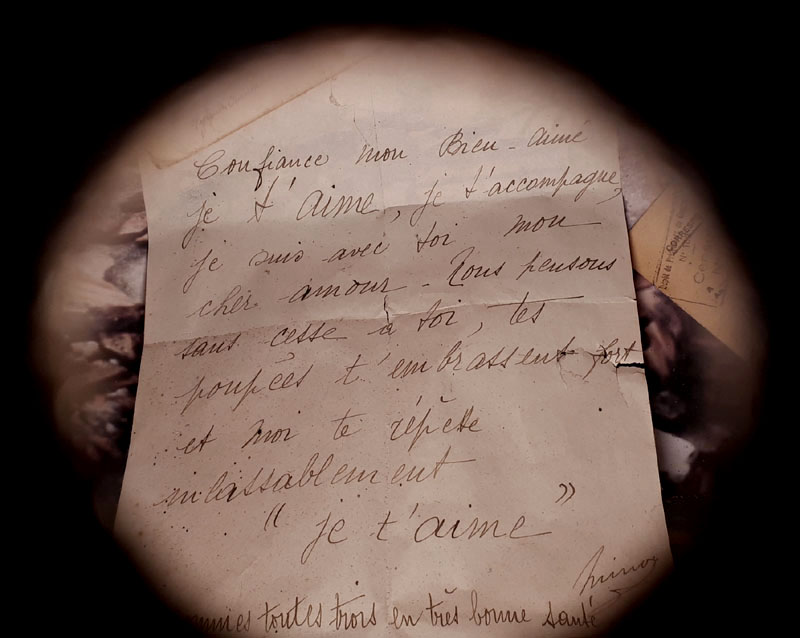 Confiance mon Bien-aimé
je t'aime, je t'accompagne,
je suis avec toi mon
cher amour - Nous pensons
sans cesse à toi, tes
poupées t'embrassent fort
et moi te répète
inlassablement
" je t'aime "
toutes trois en très bonne santé